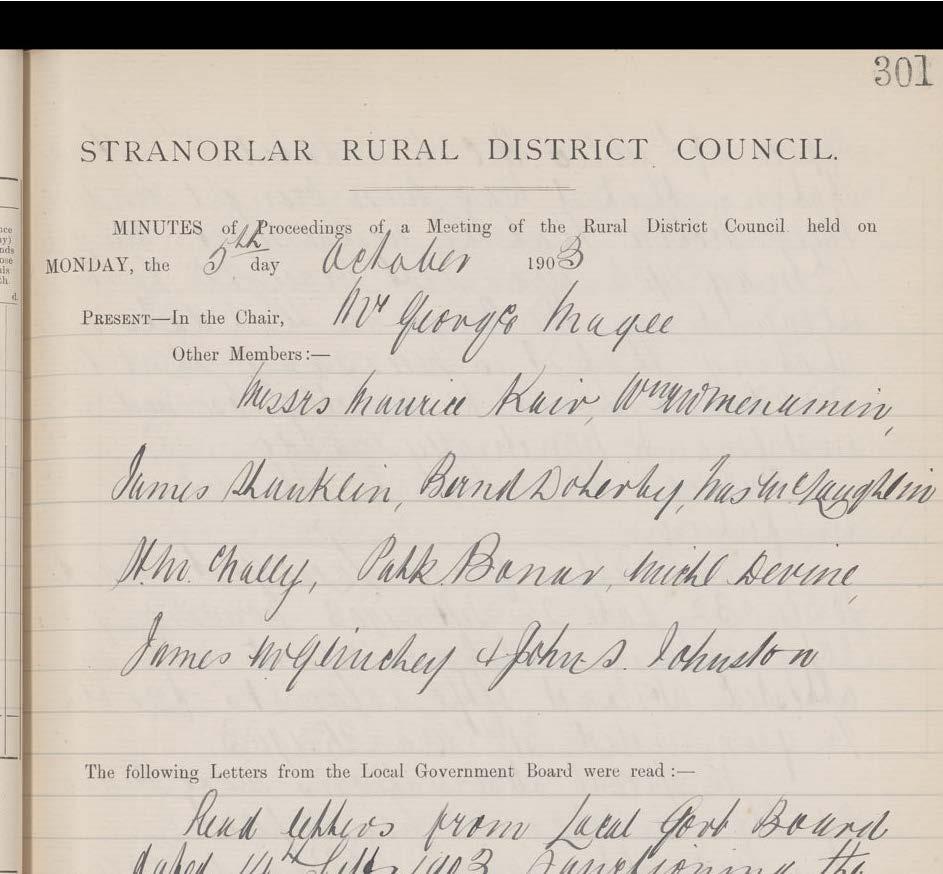 301
STRANORLAR RURAL DISTRICT COUNCIL.
MINUTES of Proceedings of a Meeting of the Rural District Council held on
MONDAY, the 5th day October 1903
PRESENT—In the Chair, Mr George Magee
Other Members:—
Messrs Maurice Kair, Wm McMenamin,
James Shanklin, Bernd Doherty, McLaughlin
Patk Bonar, Michl Devine,
James McGlinchey & John S. Johnston
The following Letters from the Local Government Board were read:—
Read letters from Local Govt Board
dated Sept 1903 sanctioning the